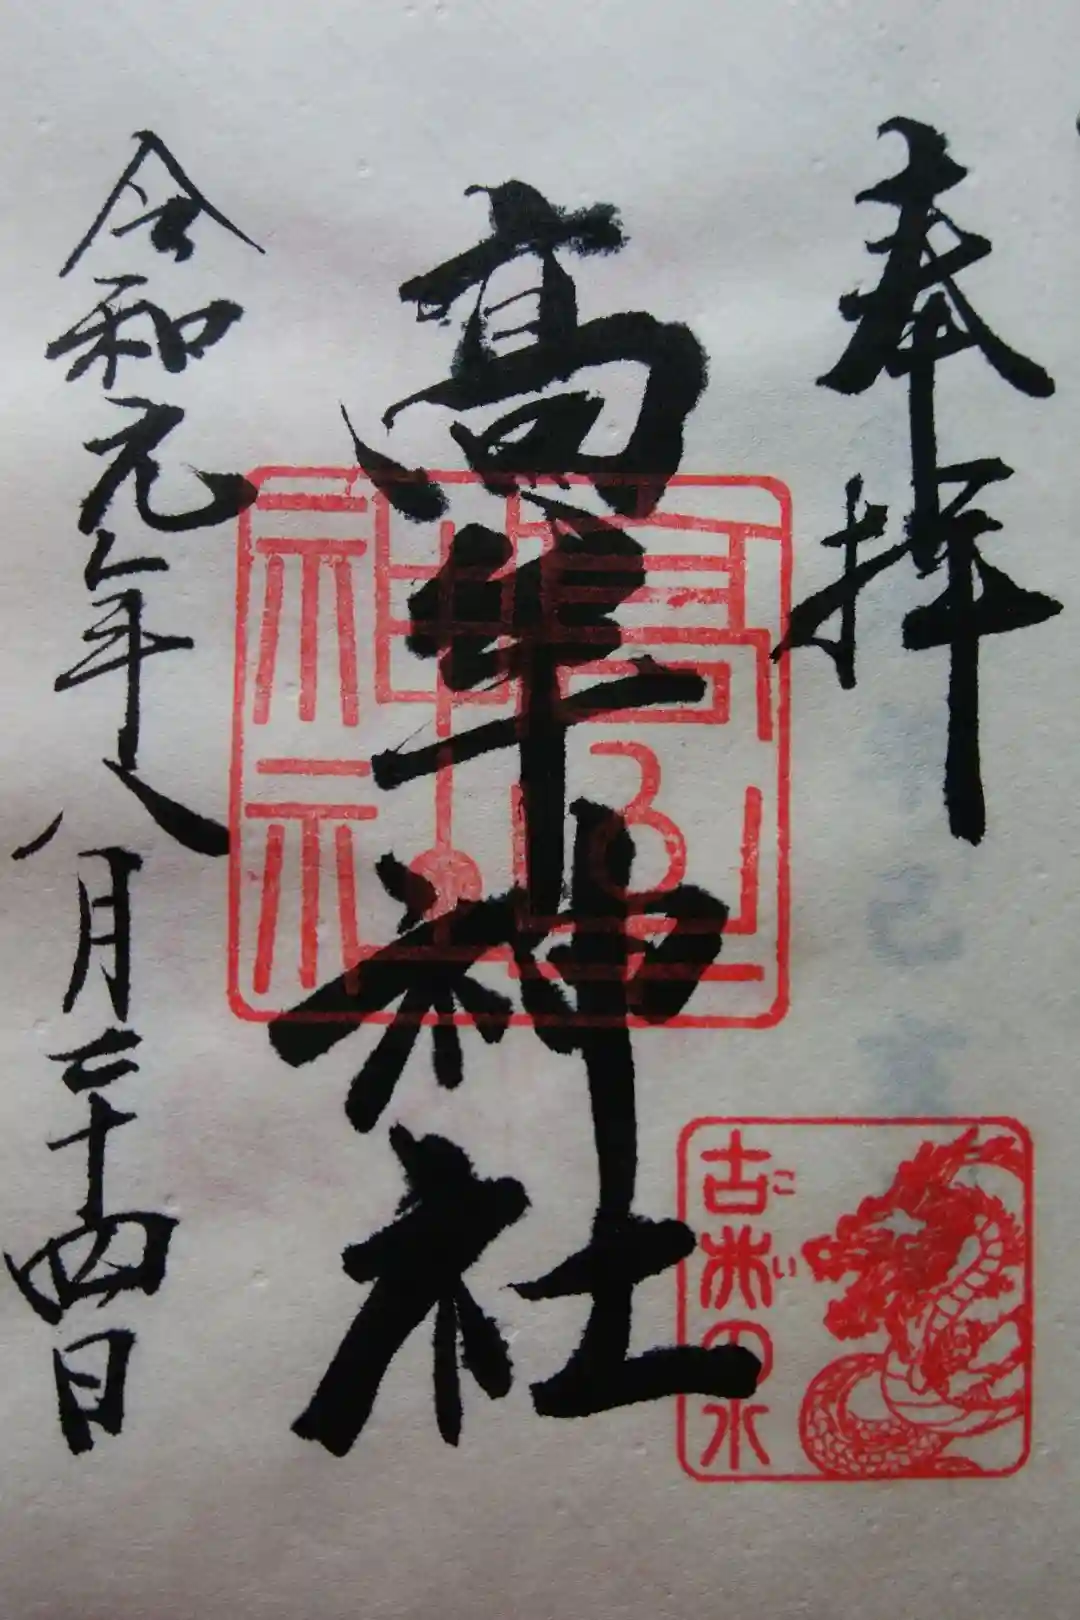 奉拝
高牟神社
令和元年八月二十四日
高牟
神社
古井の水
こい